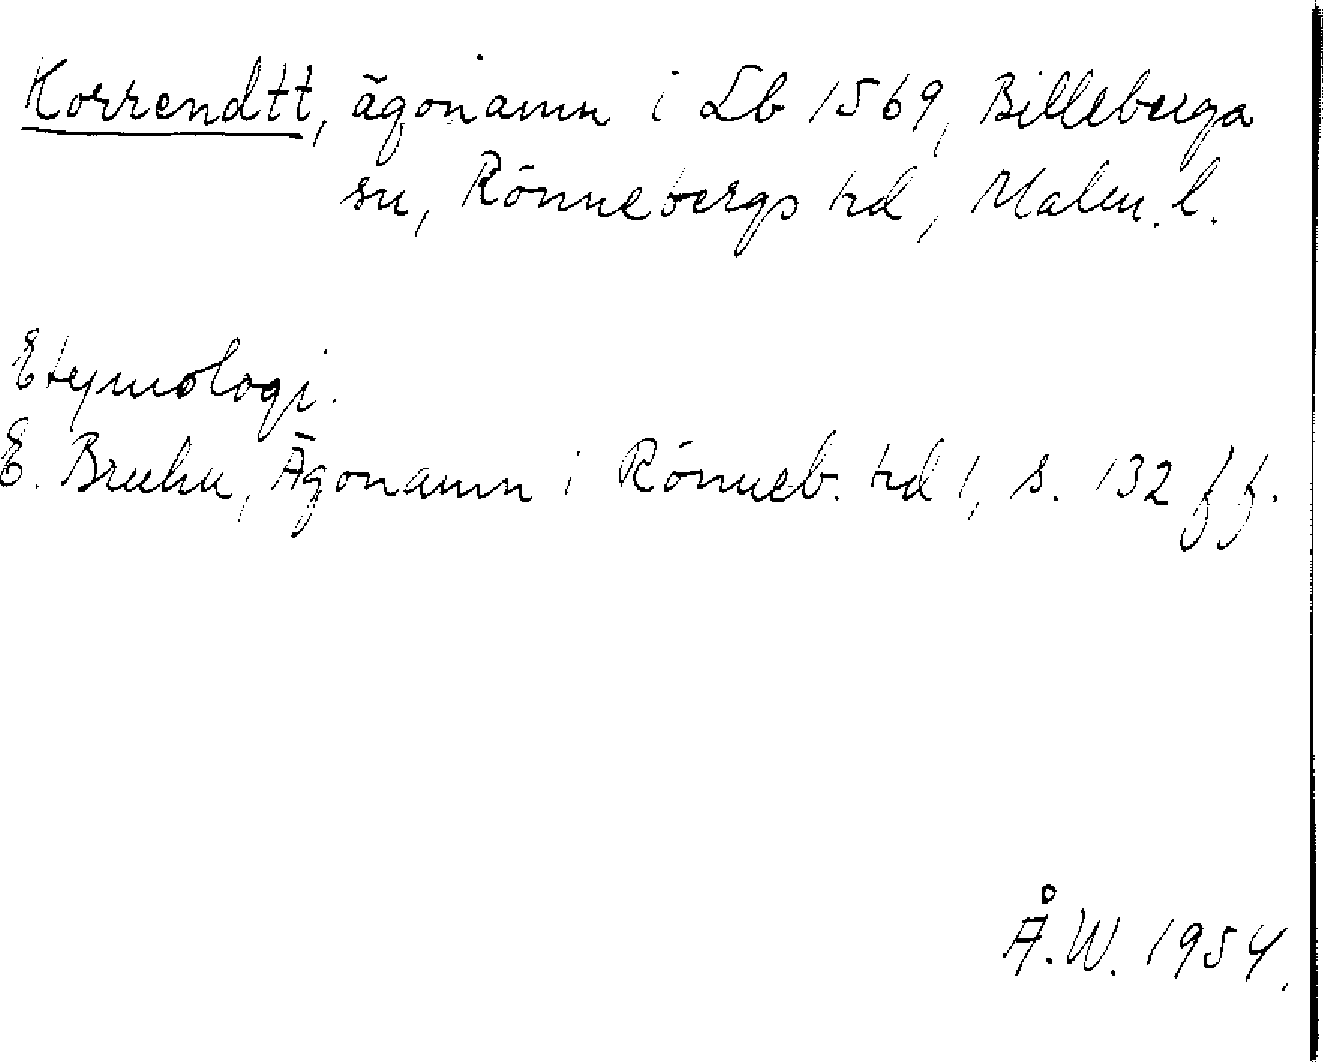 Korrendtt, ägonamn i Lb 1569, Billeberga
sn, Rönnebergs hd, Malm. l.
Etymologi.
E. Bruhn, Ägonamn i Rönneb. hd 1, s. 132 ff.
Å.W. 1954.